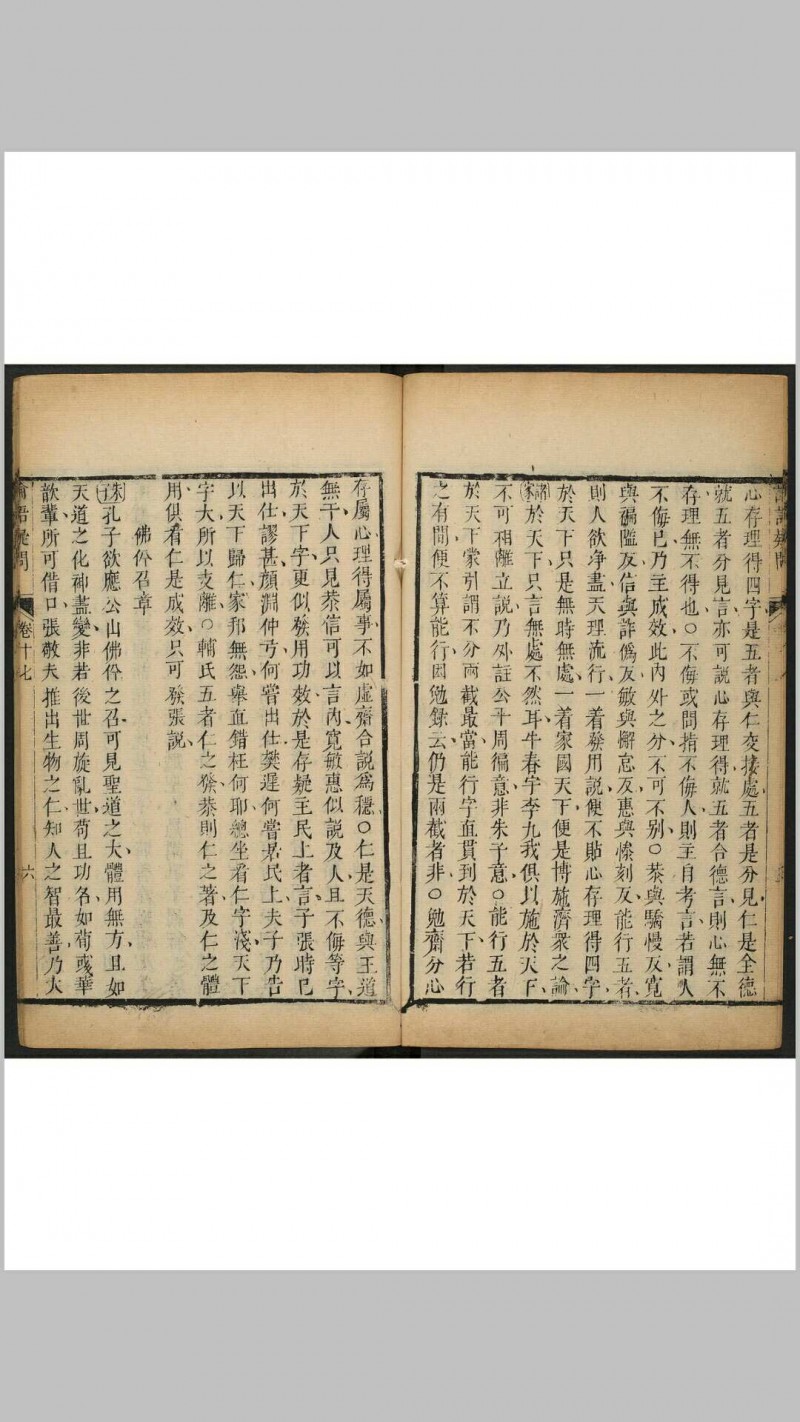 心存理得四字是五者與仁交接處五者是分見仁是全德
就五者分見言亦可說心存理得就五者合德言則心無不
存理無不得也○不侮或問指不侮人則主自考言若謂人
不侮已乃主成效此內外之分不可不别○恭與驕慢反寬
與褊隘反信與詐僞反敏與懈怠反惠與慘刻反能行五者
則人欲净盡天理流行一着發用說便不貼心存理得四字
於天下只是無時無處一着家國天下便是博施濟衆之論
於天下只言無處不然耳牛春宇李九我俱以施於天下
不可相離立說乃外註公平周徧意非朱子意○能行五者
於天下蒙引謂不分兩截最當能行字直貫到於天下若行
之有間便不算能行因勉録云仍是兩截者非○勉齋分心
存屬心理得屬事不如虛齋合說爲穩○仁是天德與王道
無干人只見恭信可以言內寬敏惠似說及人且不侮等字
於天下字更似發用功效於是存疑主民上者言子張時已
出仕謬甚顔淵仲弓何嘗出仕樊遲何嘗居民上夫子乃告
以天下歸仁家邦無怨舉直錯枉何耶總坐看仁字淺天下
字大所以支離○輔氏五者仁之發恭則仁之著及仁之體
用俱看仁是成效只可發張說
佛肸召章
孔子欲應公山佛肸之召可見聖道之大體用無方且如
天道之化神盡變非若後世周旋亂世苟且功名如荀彧華
歆輩所可借口張敬夫推出生物之仁知人之智最善乃大
卷十七
六